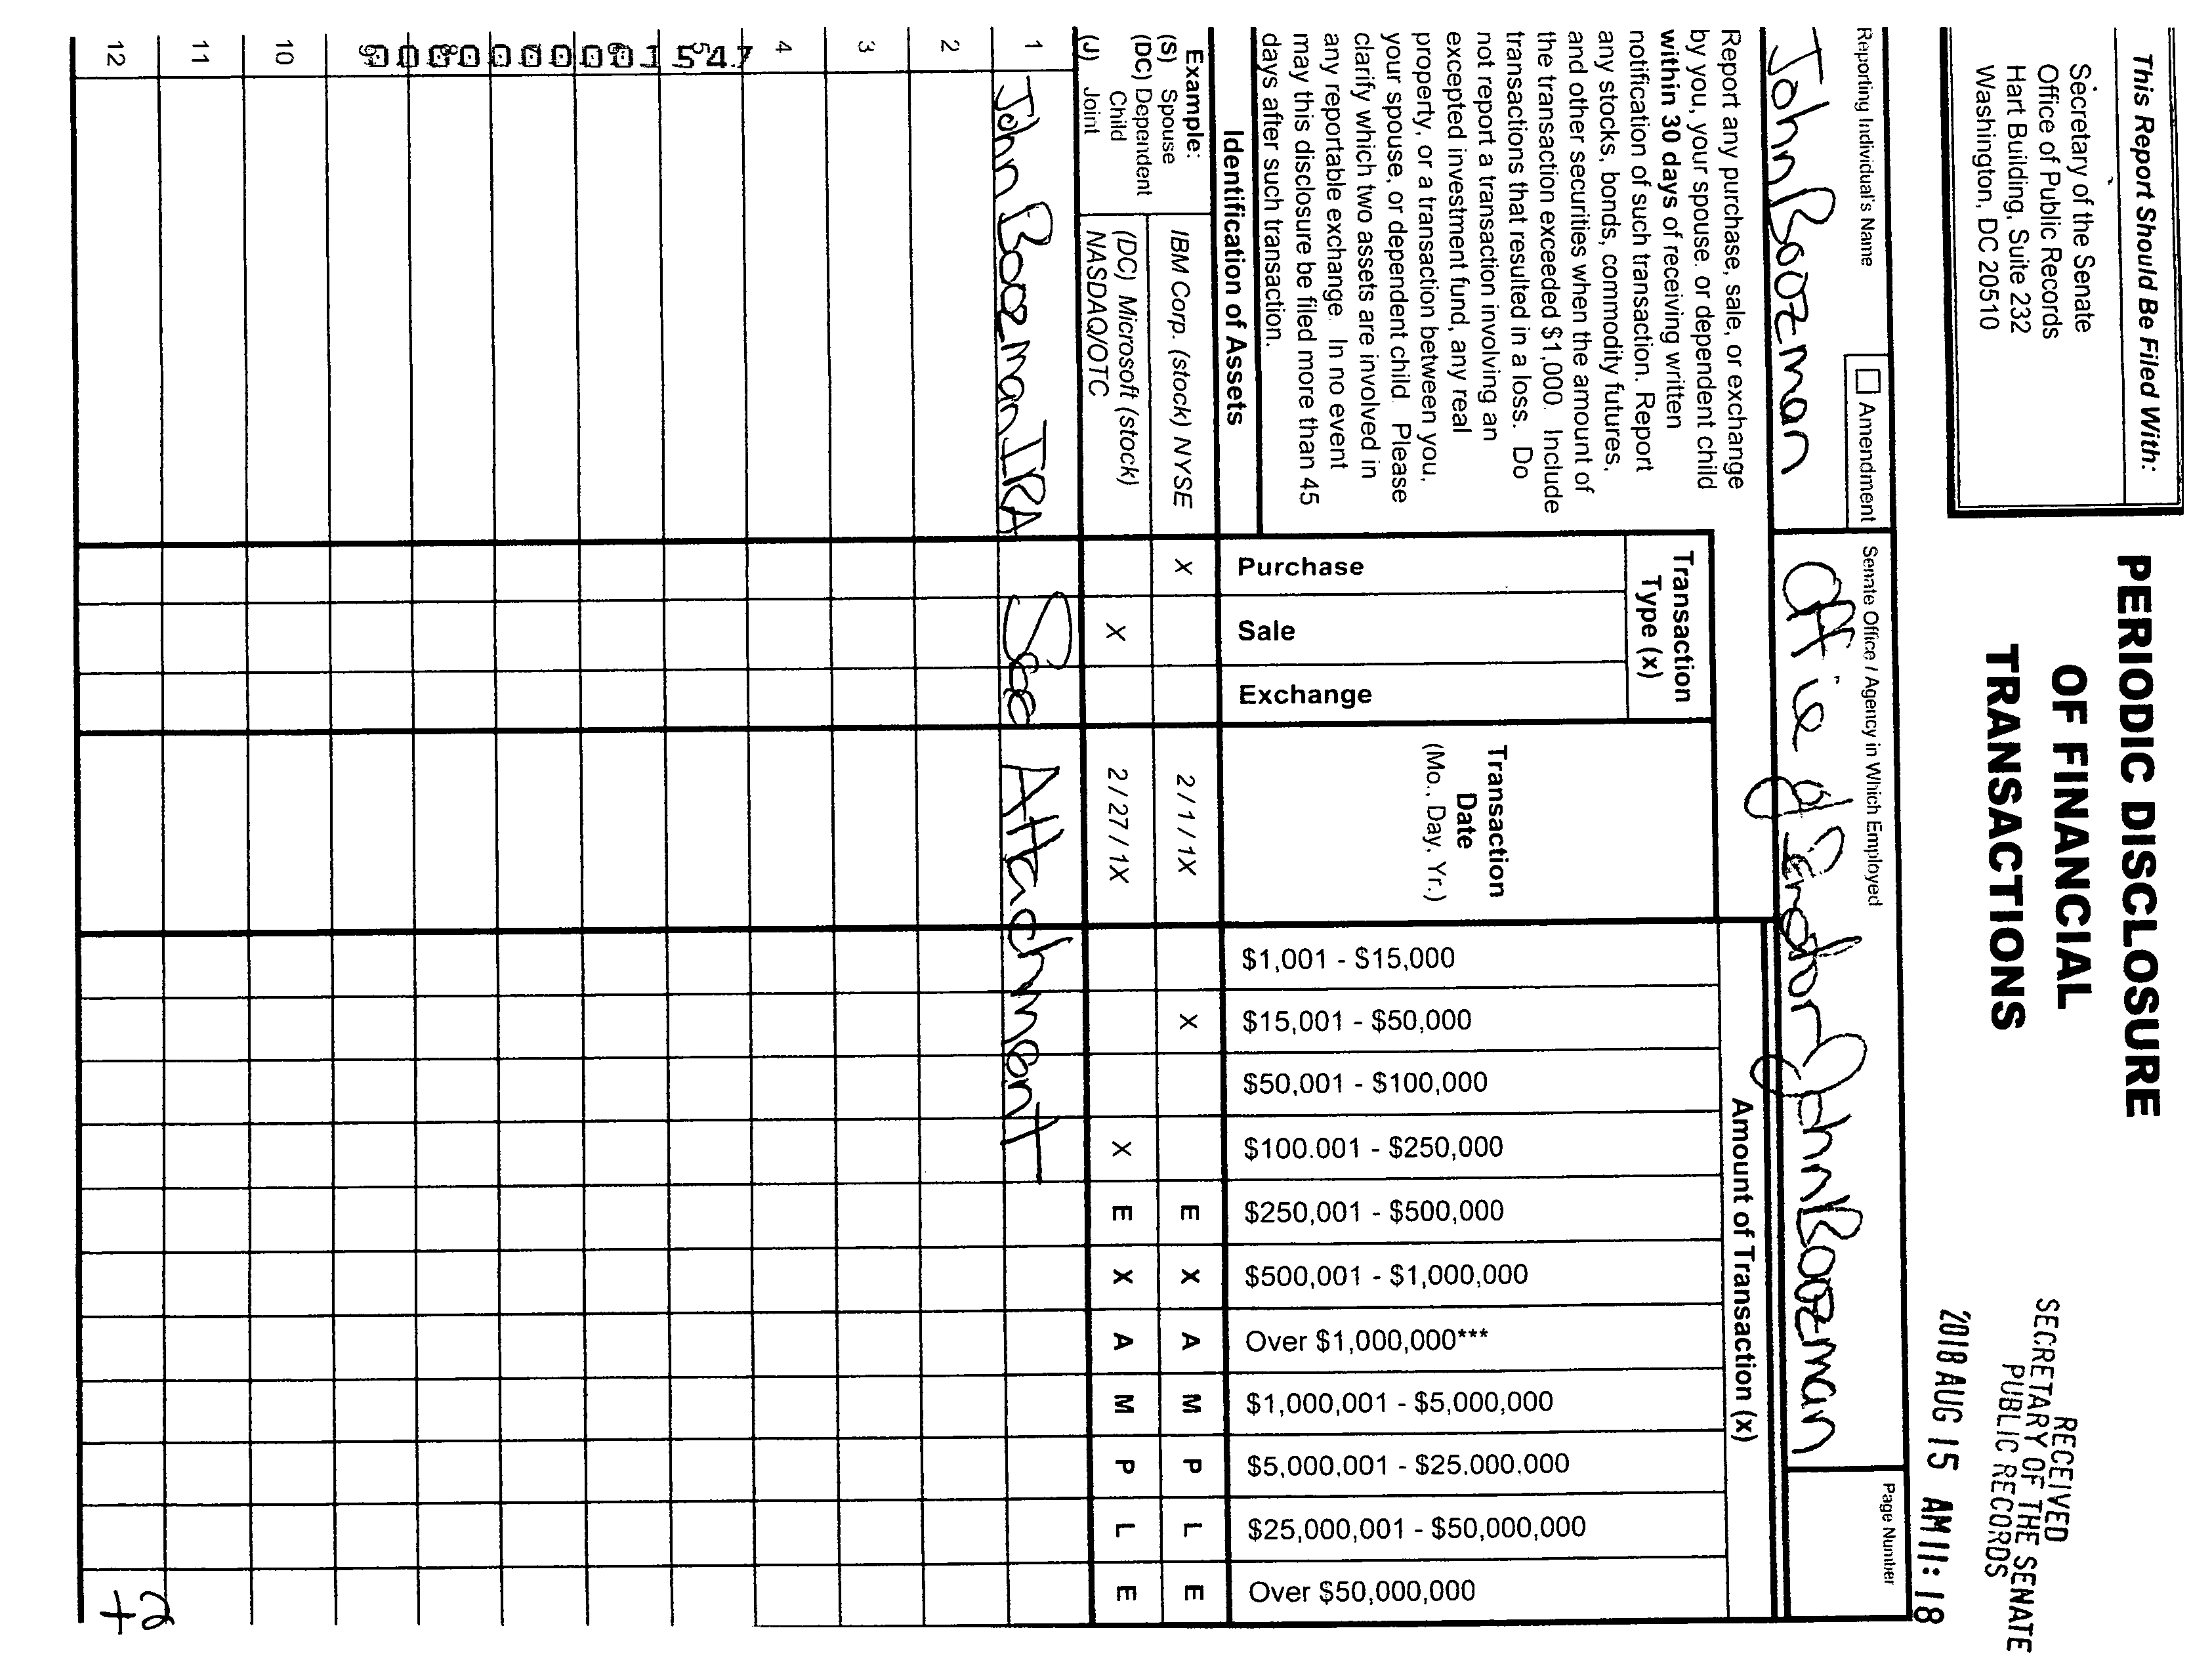 This Report Should Be Filed With:
Secretary of the Senate
Office of Public Records
Hart Building, Suite 232
Washington, DC 20510
PERIODIC DISCLOSURE
OF FINANCIAL
TRANSACTIONS
RECEIVED
SECRETARY OF THE SENATE
PUBLIC RECORDS
2018 AUG 15 AM 11: 18
Reporting Individual's Name
John Boozman
Amendment
Senate Office / Agency in Which Employed
Office of Senator John Boozman
Page Number
Report any purchase, sale, or exchange
by you, your spouse, or dependent child
within 30 days of receiving written
notification of such transaction. Report
any stocks, bonds, commodity futures,
and other securities when the amount of
the transaction exceeded $1,000. Include
transactions that resulted in a loss. Do
not report a transaction involving an
excepted investment fund, any real
property, or a transaction between you,
your spouse, or dependent child. Please
clarify which two assets are involved in
any reportable exchange. In no event
may this disclosure be filed more than 45
days after such transaction.
Identification of Assets
Transaction
Type (x)
Purchase
Sale
Exchange
Transaction
Date
(Mo., Day, Yr.)
Amount of Transaction (x)
$1,001 - $15,000
$15,001 - $50,000
$50,001 - $100,000
$100.001 - $250,000
$250,001 - $500,000
$500,001 - $1,000,000
Over $1,000,000***
$1,000,001 - $5,000,000
$5,000,001 - $25,000,000
$25,000,001 - $50,000,000
Over $50,000,000
Example:
(S) Spouse
(DC) Dependent
Child
(J) Joint
IBM Corp. (stock) NYSE X 2 / 1 / 1X X E X A M P L E
(DC) Microsoft (stock)
NASDAQ/OTC X 2 / 27 / 1X X E X A M P L E
1 John Boozman IRA See Attachment
2
3
4
5
10
11
12